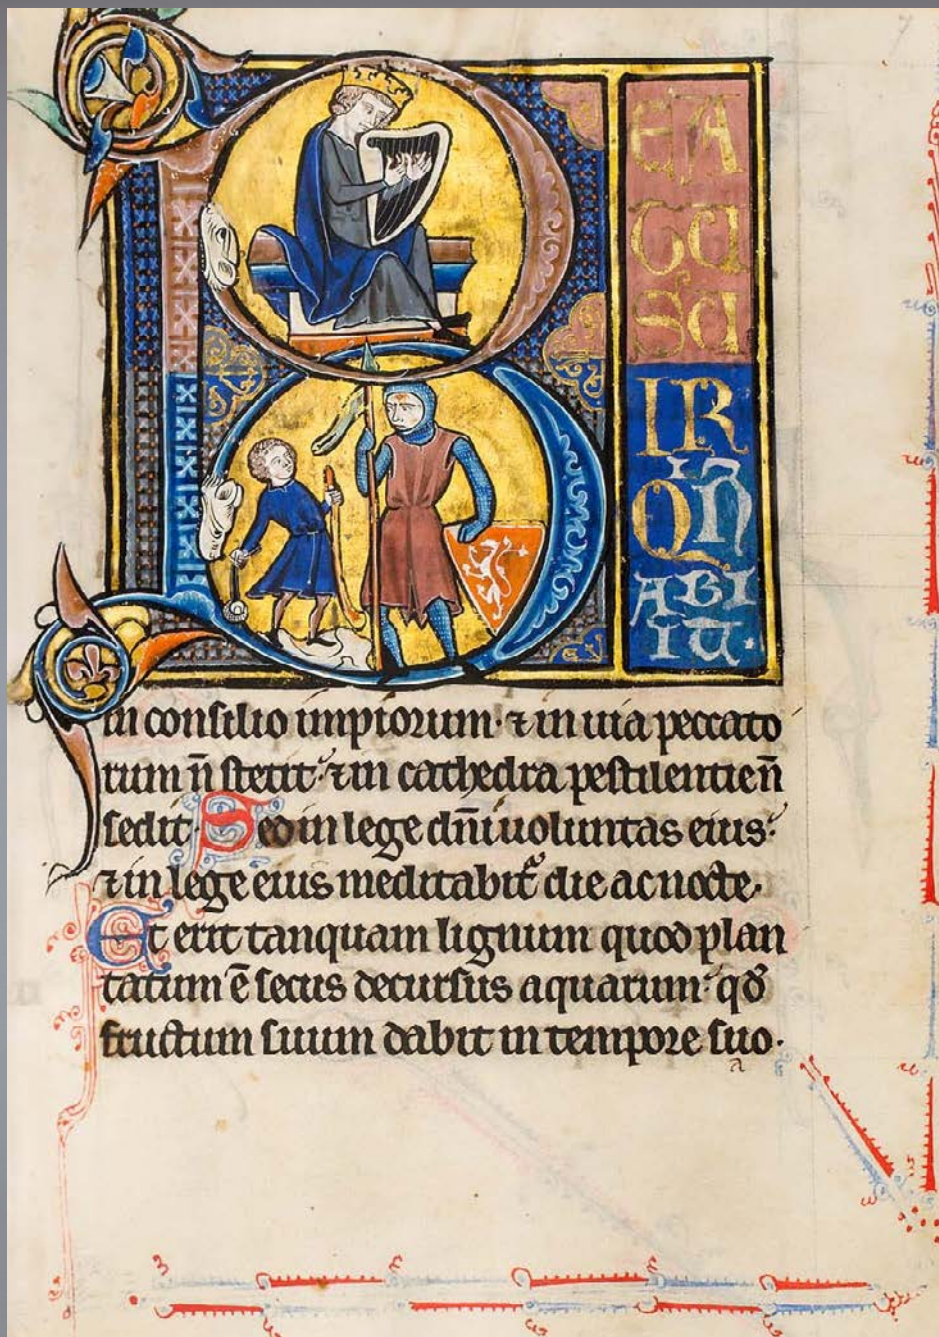 B EA
TU
SU
IR
QI N̄
ABI
IT·
in consilio impiorum· ⁊ in uia peccato
rum n̄ stetit: ⁊ in cathedra pestilentie n̄
sedit· Sed in lege dn̄i uoluntas eius:
⁊ in lege eius meditabit᷑ die ac nocte·
Et erit tanquam lignum quod plan
tatum ē secus decursus aquarum: qd̄
fructum suum dabit in tempore suo·
a